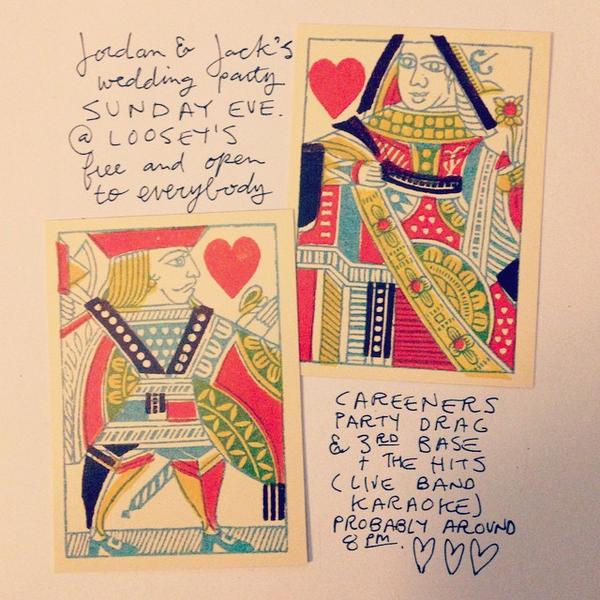 Jordan & Jack's
wedding party
SUNDAY EVE.
@ LOOSEY'S
free and open
to everybody
CAREENERS
PARTY DRAG
& 3RD BASE
+ THE HITS
(LIVE BAND
KARAOKE)
PROBABLY AROUND
8 PM.